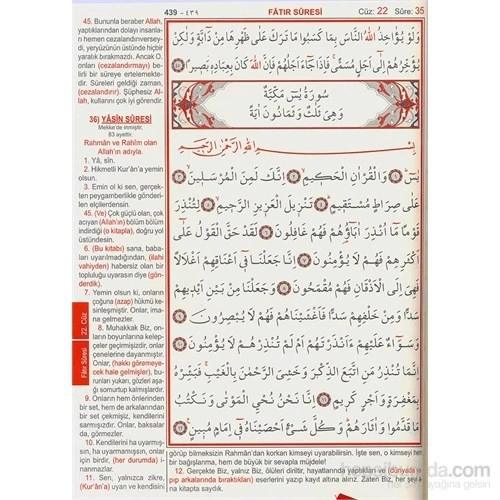 439 - ٤٣٩
FÂTIR SÛRESİ
Cüz: 22 Sûre: 35
45. Bununla beraber Allah,
yaptıklarından dolayı insanla-
rı hemen cezalandırıverseydi,
yeryüzünün üstünde hiçbir
mahlûk bırakmazdı. Ancak O,
onları (cezalandırmayı) be-
lirli bir süreye ertelemekte-
dir. Süreleri geldiği zaman,
(cezalandırır). Şüphesiz Al-
lah, kullarını çok iyi görendir.
36) YÂSÎN SÛRESİ
Mekke'de inmiştir,
83 ayettir.
Rahmân ve Rahîm olan
Allah'ın adıyla.
1. Yâ, sîn.
2. Hikmetli Kur'ân'a yemin
olsun.
3. Emin ol ki sen, gerçek-
ten peygamberlikle gönderi-
len elçilerdensin.
45. (Ve) Çok güçlü olan, çok
acıyan (Allah'ın) bölüm bölüm
indirdiği (o kitapla), doğru yol
üstündesin.
6. (Bu kitabı) sana, baba-
ları uyarılmadığından, (ilahi
vahiyden) habersiz olan bir
topluluğu uyarasın diye (gön-
derdik).
7. Yemin olsun ki, onların
çoğuna (azap) hükmü ke-
sinleşmiştir. Onlar, ima-
na gelmezler.
8. Muhakkak Biz, on-
ların boyunlarına kelep-
çeler geçirmişizdir, onlar
çenelerine dayanmıştır.
Onlar, (hakkı göremeye-
cek hale gelmişler), bu-
runları yukarı, gözleri aşa-
ğı somurtup kalmışlardır.
9. Onların hem önlerinden
bir set, hem de arkalarından
bir set çekmişiz, kendilerini
sarmışızdır. Onlar, baksalar
da, görmezler.
10. Kendilerini ha uyarmış-
sın, ha uyarmamışsın, onlar
için birdir, (her durumda) i-
nanmazlar.
11. Sen, yalnızca zikre,
(Kur'ân'a) uyan ve kendisini
22. Cüz
Fâtır Sûresi
وَلَوْ يُؤَاخِذُ اللّٰهُ النَّاسَ بِمَا كَسَبُوا مَا تَرَكَ عَلٰى ظَهْرِهَا مِنْ دَابَّةٍ وَلٰكِنْ
يُؤَخِّرُهُمْ اِلٰى اَجَلٍ مُسَمًّى فَاِذَا جَاءَ اَجَلُهُمْ فَاِنَّ اللّٰهَ كَانَ بِعِبَادِهٖ بَصِيرًا ﴿٤٥﴾
سُورَةُ يٰسٓ مَكِّيَّةٌ
وَهِيَ ثَلٰثٌ وَثَمَانُونَ اٰيَةً
بِسْمِ اللّٰهِ الرَّحْمٰنِ الرَّحِيمِ
يٰسٓ ﴿١﴾ وَالْقُرْاٰنِ الْحَكِيمِ ﴿٢﴾ اِنَّكَ لَمِنَ الْمُرْسَلِينَ ﴿٣﴾
عَلٰى صِرَاطٍ مُسْتَقِيمٍ ﴿٤﴾ تَنْزِيلَ الْعَزِيزِ الرَّحِيمِ ﴿٥﴾ لِتُنْذِرَ
قَوْمًا مَا اُنْذِرَ اٰبَاؤُهُمْ فَهُمْ غَافِلُونَ ﴿٦﴾ لَقَدْ حَقَّ الْقَوْلُ عَلٰى
اَكْثَرِهِمْ فَهُمْ لَا يُؤْمِنُونَ ﴿٧﴾ اِنَّا جَعَلْنَا فِى اَعْنَاقِهِمْ اَغْلَالًا
فَهِىَ اِلَى الْاَذْقَانِ فَهُمْ مُقْمَحُونَ ﴿٨﴾ وَجَعَلْنَا مِنْ بَيْنِ اَيْدِيهِمْ
سَدًّا وَمِنْ خَلْفِهِمْ سَدًّا فَاَغْشَيْنَاهُمْ فَهُمْ لَا يُبْصِرُونَ ﴿٩﴾
وَسَوَاءٌ عَلَيْهِمْ ءَاَنْذَرْتَهُمْ اَمْ لَمْ تُنْذِرْهُمْ لَا يُؤْمِنُونَ ﴿١٠﴾
اِنَّمَا تُنْذِرُ مَنِ اتَّبَعَ الذِّكْرَ وَخَشِىَ الرَّحْمٰنَ بِالْغَيْبِ فَبَشِّرْهُ
بِمَغْفِرَةٍ وَاَجْرٍ كَرِيمٍ ﴿١١﴾ اِنَّا نَحْنُ نُحْيِ الْمَوْتٰى وَنَكْتُبُ
مَا قَدَّمُوا وَاٰثَارَهُمْ وَكُلَّ شَىْءٍ اَحْصَيْنَاهُ فِى اِمَامٍ مُبِينٍ ﴿١٢﴾
görüp bilmeksizin Rahmân'dan korkan kimseyi uyarabilirsin. İşte sen, o kimseyi hem
bir bağışlanma, hem de büyük bir sevapla müjdele!
12. Gerçekten Biz, yalnız Biz, ölüleri diriltir, hayatlarında yaptıkları ve (dünyada ya-
pıp arkalarında bıraktıkları) eserlerini yazıp kayıt altına alırız. Zaten Biz, her şeyi a-
na kitapta saydık.